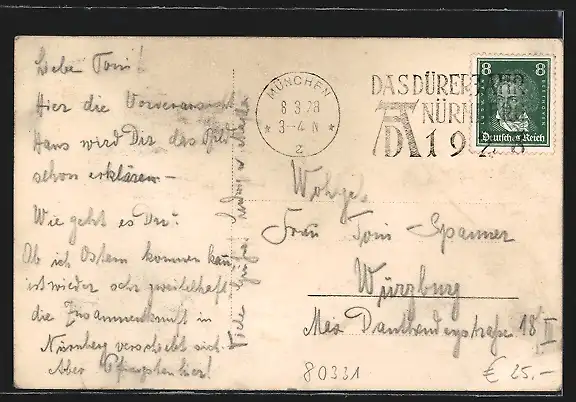 Liebe Toni!
Hier die Voreransicht
Hans wird Dir das Bild
schon erklären –
Wie geht es Dir?
Ob ich Ostern kommen kann
ist wieder sehr zweifelhaft
die Zusammenkunft in
Nürnberg verschiebt sich.
Aber Pfingsten hier!
Viele Grüße
MÜNCHEN
8 3.28
3-4 N
2
DAS DÜRER
NÜRN
AD 19 8
8 8
Deutsches Reich
Wohlgeb.
Frau Toni Spanner
Würzburg
Max Dauthendeystraße 18 II
80331
€ 25.-